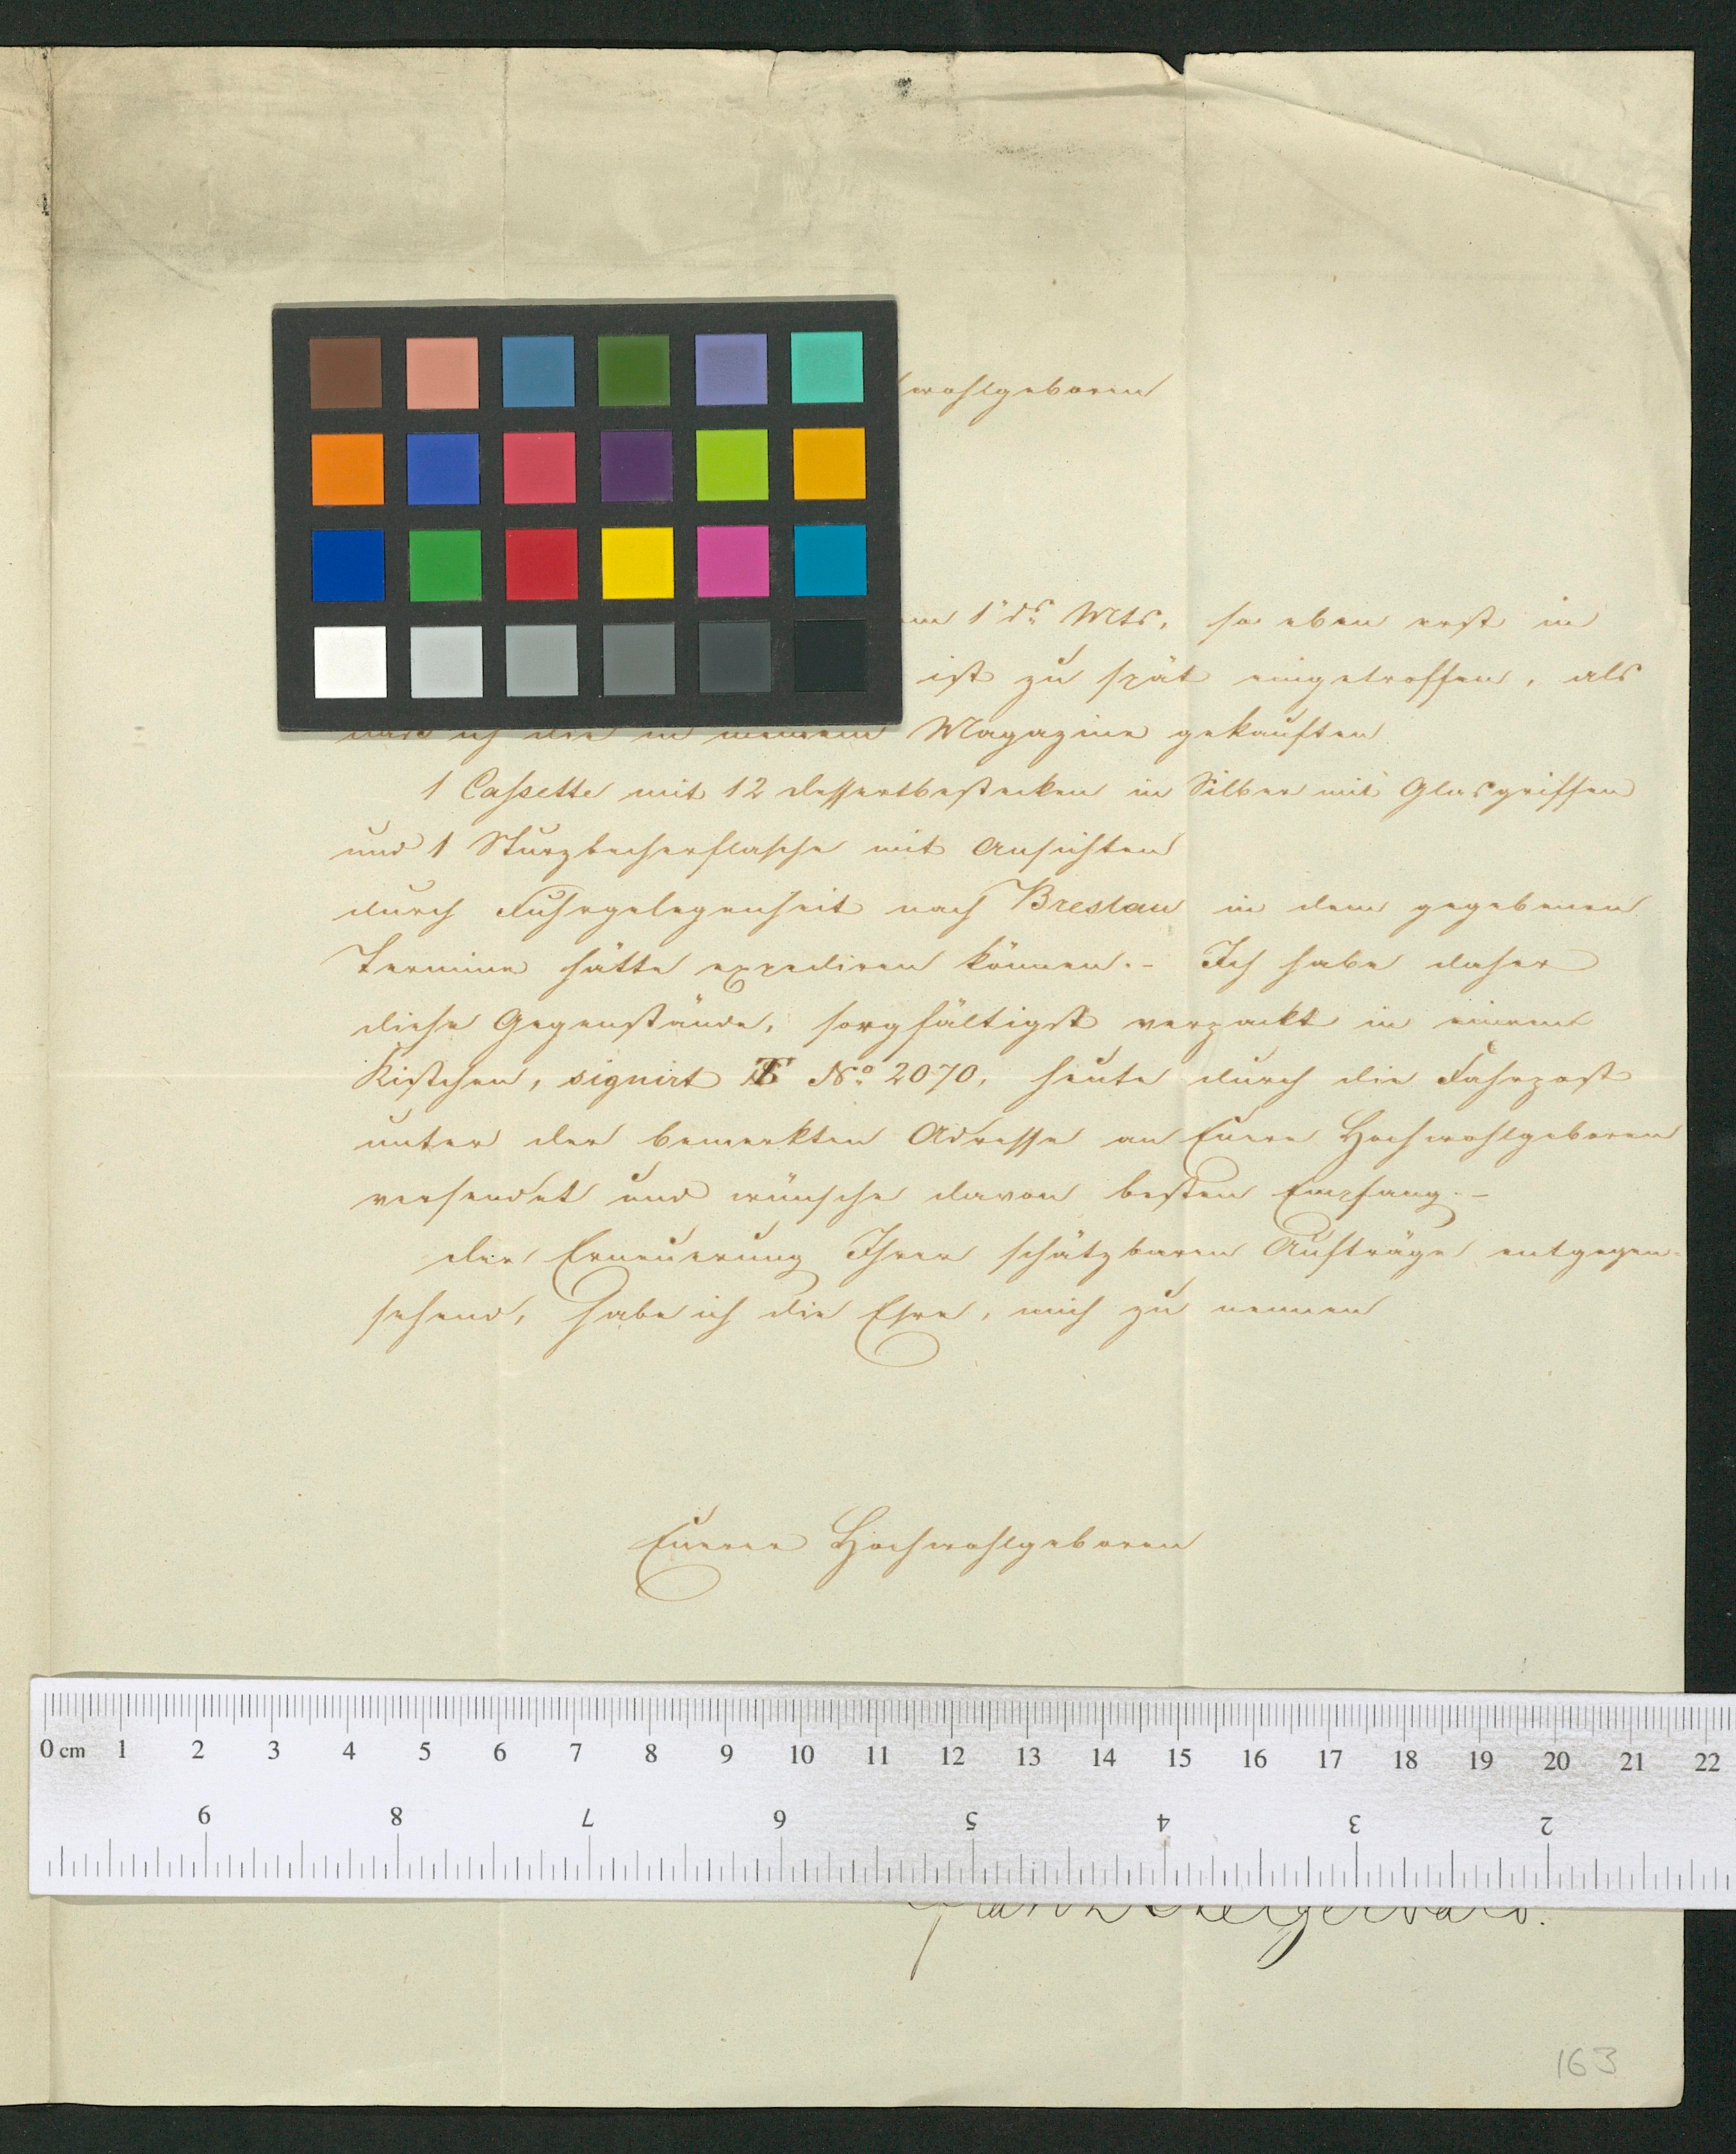 wohlgeboren
1ten ds Mts, so eben erst in
ist zu spät eingetroffen, als
daß ich die in meinem Magazine gekauften
1 Caßette mit 12 Dessertbestecken in Silber mit Glasgriffen
und 1 Sturzbecherflasche mit Ansichten
durch Fuhrgelegenheit nach Breslau in dem gegebenen
Termine hätte expediren können.- Ich habe daher
diese Gegenstände, sorgfältigst verpackt in einem
Kistchen, signirt No. 2070, heute durch die Fahrpost
unter der bemerkten Adresse an Euere Hochwohlgeboren
versendet und wünsche davon besten Empfang.-
Der Erneuerung Ihrer schätzbaren Aufträge entgegen-
sehend, habe ich die Ehre, mich zu nennen
Euerer Hochwohlgeboren
0 cm 1 2 3 4 5 6 7 8 9 10 11 12 13 14 15 16 17 18 19 20 21 22
9 8 7 6 5 4 3 2
Steigerwald.
163